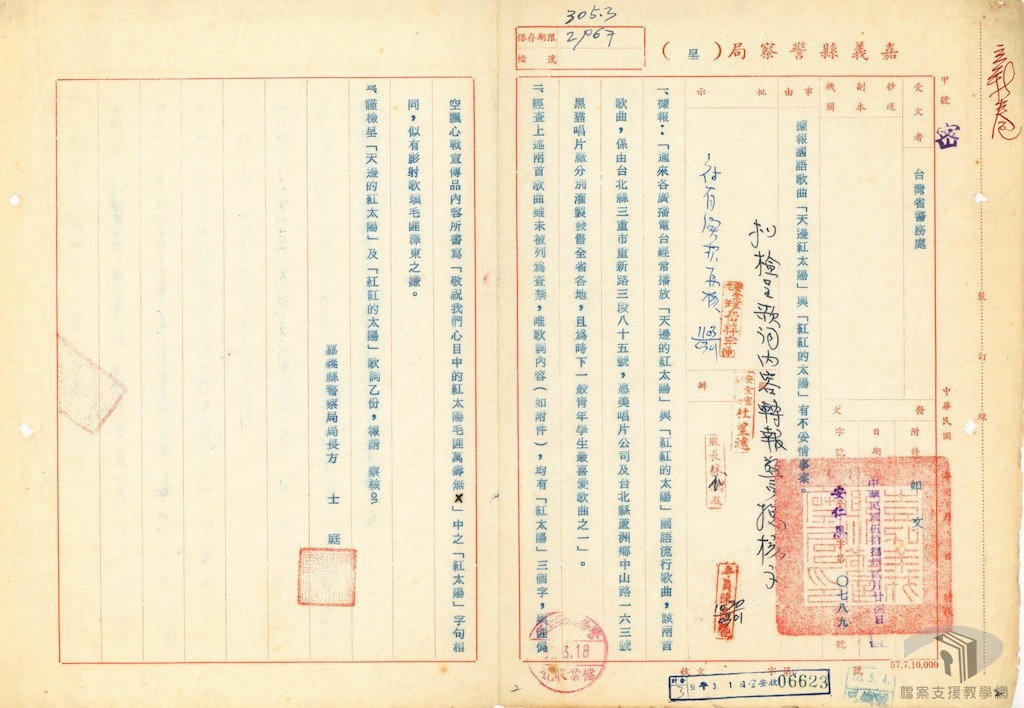 305.3
保存期限
2,067
檔號
嘉義縣警察局（呈）
甲號
密
受文者
台灣省警務處
抄送
副本
機關
事由
據報國語歌曲「天邊紅太陽」與「紅紅的太陽」有不妥情事案。
批示
擬檢呈歌詞內容轉報警
發文
附件
如文
日期
字號
安仁
字第〇七八九號
中華民國
裝訂線
一、據報：「邇來各廣播電台經常播放「天邊的紅太陽」與「紅紅的太陽」國語流行歌曲，該兩首
歌曲，係由台北縣三重市重新路三段八十五號，惠美唱片公司及台北縣蘆洲鄉中山路一六三號
黑猫唱片廠分別灌製發售全省各地，且爲時下一般青年學生最喜愛歌曲之一」。
二、經查上述兩首歌曲雖未被列爲查禁，唯歌詞內容（如附件），均有「紅太陽」三個字，與匪偽
空飄心戰宣傳品內容所書寫「敬祝我們心目中的紅太陽毛匪萬壽無」中之「紅太陽」字句相
同，似有影射歌頌毛匪澤東之嫌。
三、謹檢呈「天邊的紅太陽」及「紅紅的太陽」歌詞乙份，報請　察核。
嘉義縣警察局局長方　士　庭
3.18
檔案
收文
字第
號
06623
3.4.
57.7.10,000
檔案支援教學網